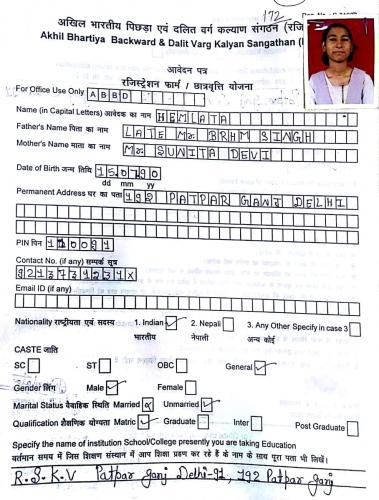 172
अखिल भारतीय पिछड़ा एवं दलित वर्ग कल्याण संगठन (रजि
Akhil Bhartiya Backward & Dalit Varg Kalyan Sangathan (
आवेदन पत्र
रजिस्ट्रेशन फार्म / छात्रवृत्ति योजना
For Office Use Only A B B D
Name (in Capital Letters) आवेदक का नाम HEMLATA
Father's Name पिता का नाम LATE Mr. BRHM SINGH
Mother's Name माता का नाम Mr. SUNITA DEVI
Date of Birth जन्म तिथि 150790
dd mm yy
Permanent Address घर का पता 192 PATPAR GANJ DELHI
PIN पिन 110091
Contact No. (if any) सम्पर्क सूत्र
921373 1234X
Email ID (if any)
Nationality राष्ट्रीयता एवं सदस्य 1. Indian ✓ 2. Nepali 3. Any Other Specify in case 3
भारतीय नेपाली अन्य कोई
CASTE जाति
SC ST OBC General ✓
Gender लिंग Male ✓ Female
Marital Status वैवाहिक स्थिति Married x Unmarried ✓
Qualification शैक्षणिक योग्यता Matric ✓ Graduate Inter Post Graduate
Specify the name of institution School/College presently you are taking Education
वर्तमान समय में जिस शिक्षण संस्थान में आप शिक्षा ग्रहण कर रहे हैं के नाम के साथ पूरा पता भी लिखें।
R.S.K.V Patpar ganj Delhi-91, 192 Patpar ganj